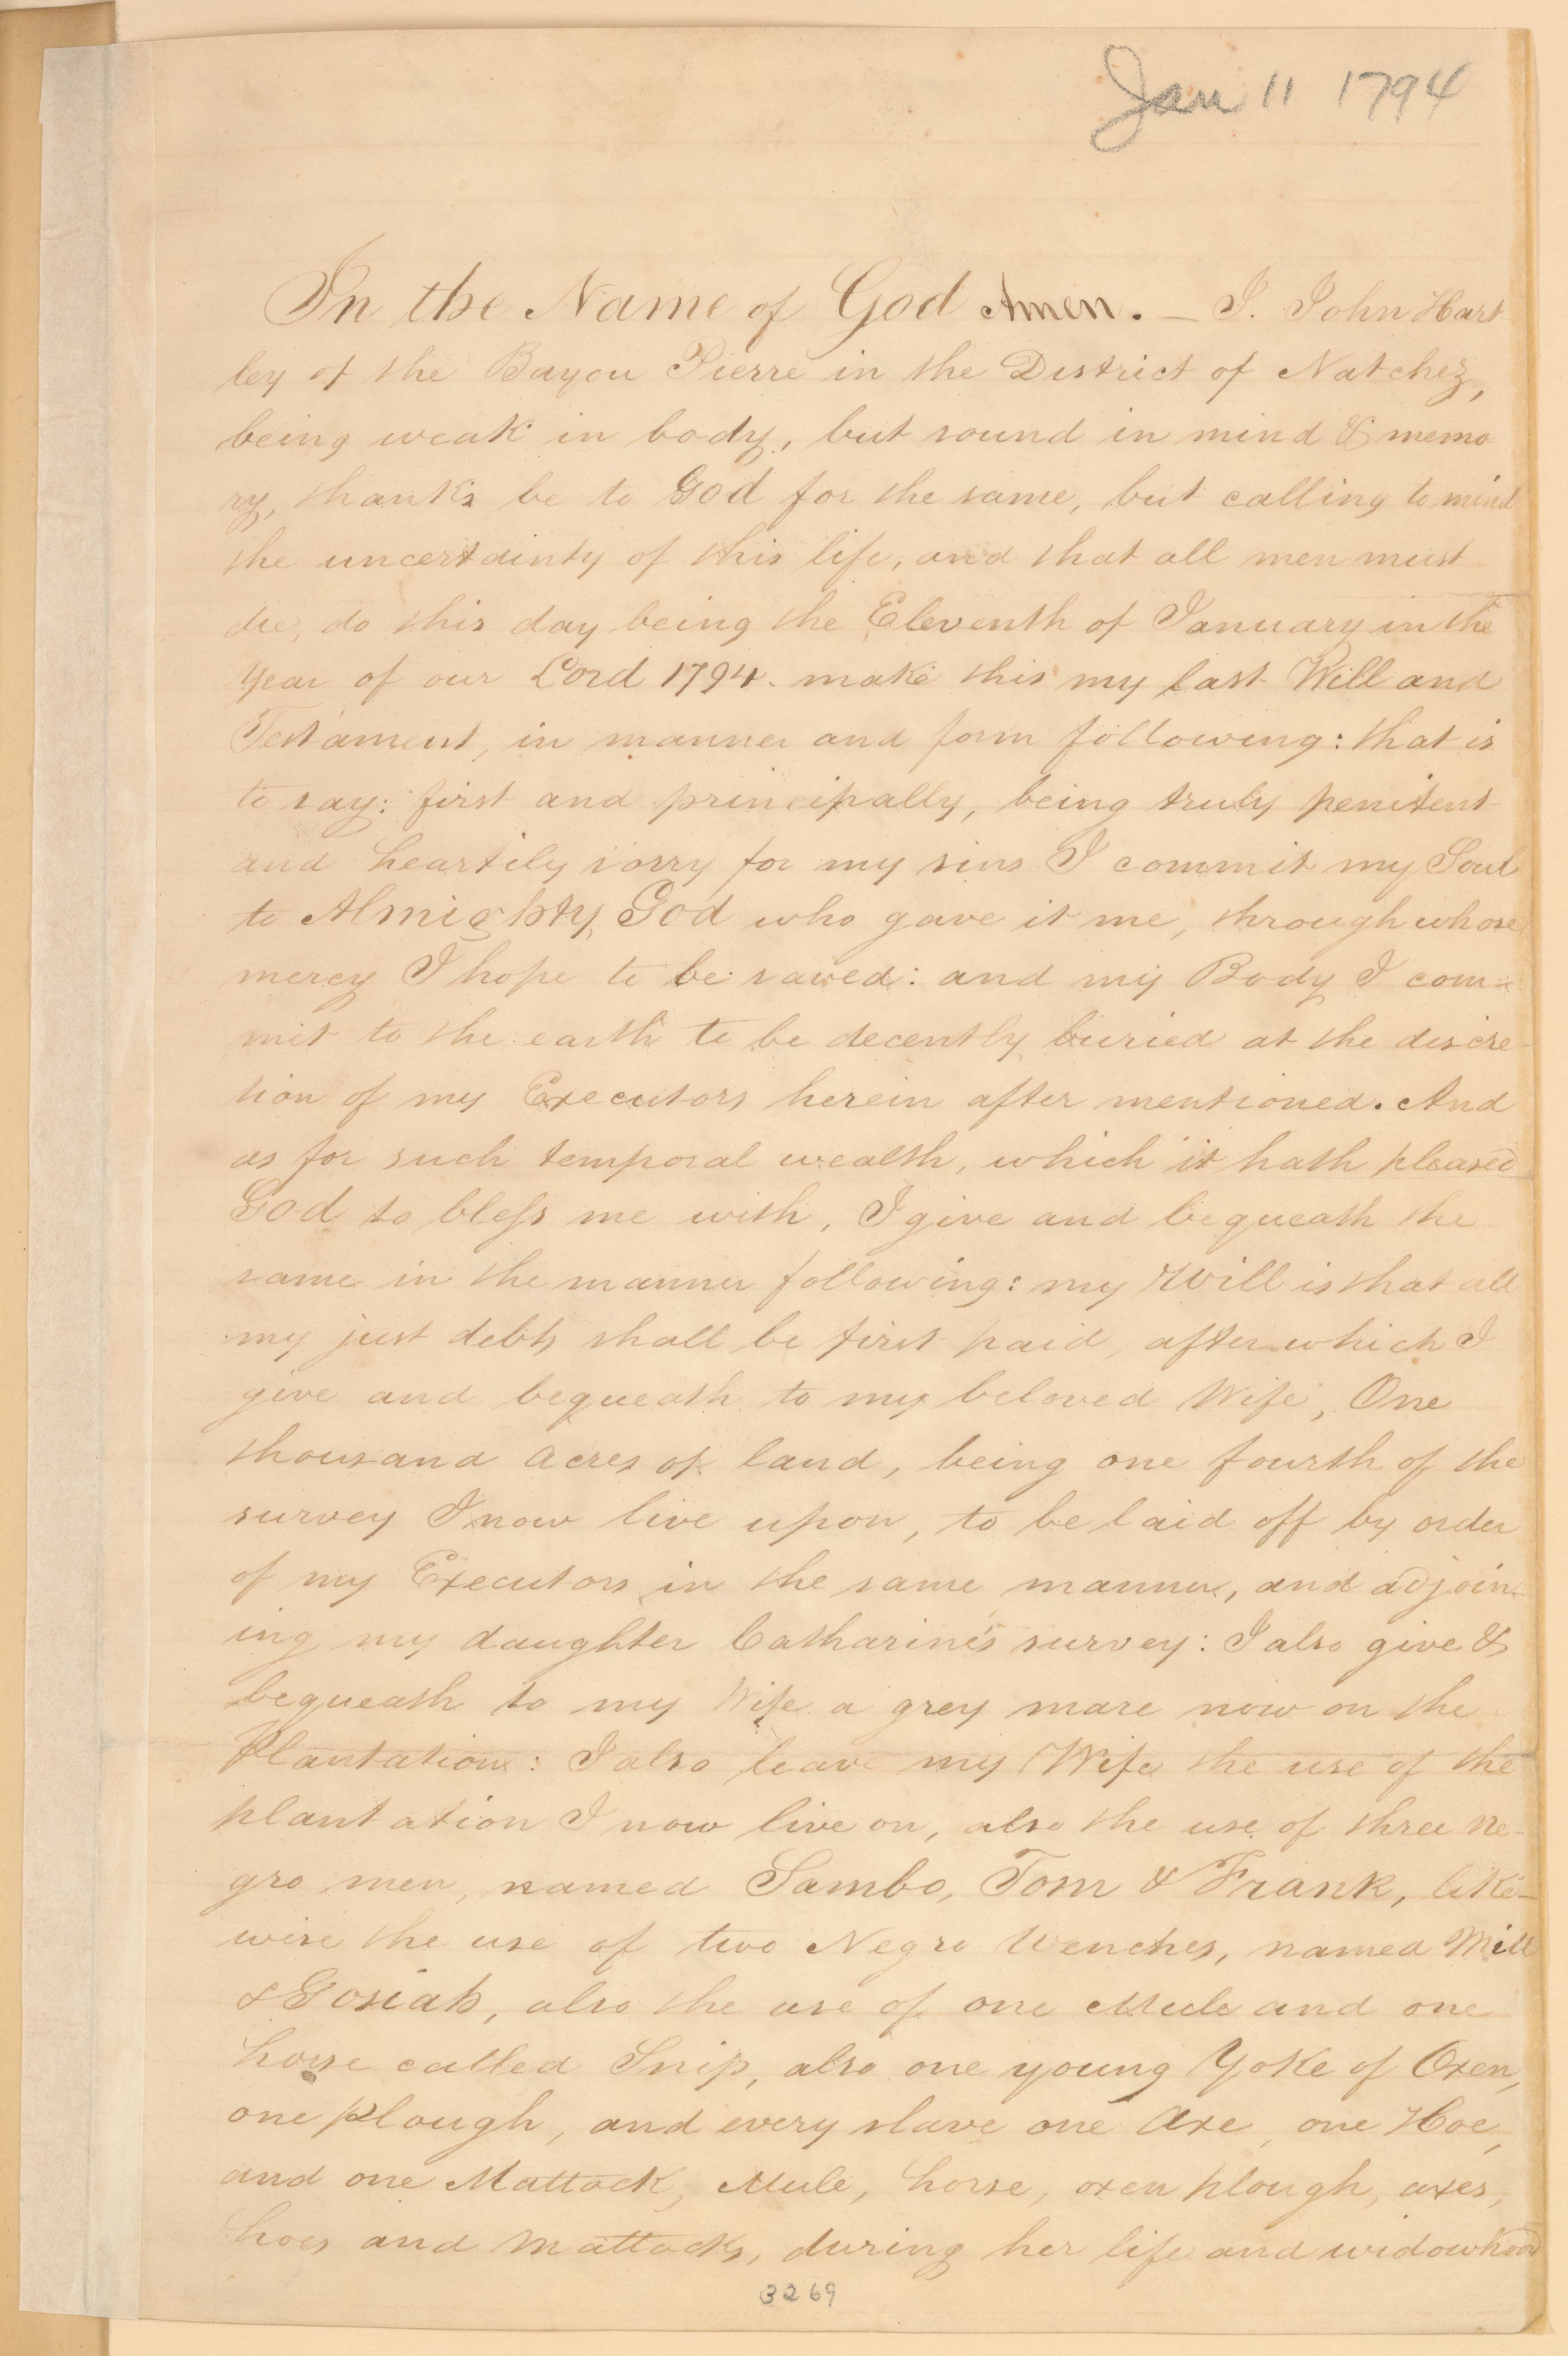 Jan 11 1794
In the Name of God Amen. — I. John Hart
ley of the Bayou Pierre in the District of Natchez,
being weak in body, but sound in mind & memo
ry, thanks be to God for the same, but calling to mind
the uncertainty of this life, and that all men must
die, do this day being the Eleventh of January in the
Year of our Lord 1794. make this my last Will and
Testament, in manner and form following: that is
to say: first and principally, being truly penitent
and heartily sorry for my sins I commit my Soul
to Almighty God who gave it me, through whose
mercy I hope to be saved: and my Body I com-
mit to the earth to be decently buried at the discre-
tion of my Executors herein after mentioned. And
as for such temporal wealth, which it hath pleased
God to bless me with, I give and bequeath the
same in the manner following: my Will is that all
my just debts shall be first paid, after which I
give and bequeath to my beloved Wife, One
thousand acres of land, being one fourth of the
survey I now live upon, to be laid off by order
of my Executors in the same manner, and adjoin-
ing my daughter Catharine's survey: I also give &
bequeath to my Wife a grey mare now on the
Plantation: I also leave my Wife the use of the
plantation I now live on, also the use of three ne-
gro men, named Sambo, Tom & Frank, like-
wise the use of two Negro Wenches, named Mill
& Gosiah, also the use of one Mule and one
horse called Snip, also one young Yoke of Oxen,
one plough, and every slave one Axe, one Hoe,
and one Mattock, Mule, horse, oxen plough, axes,
hoes and Mattocks, during her life and widowhood
3269